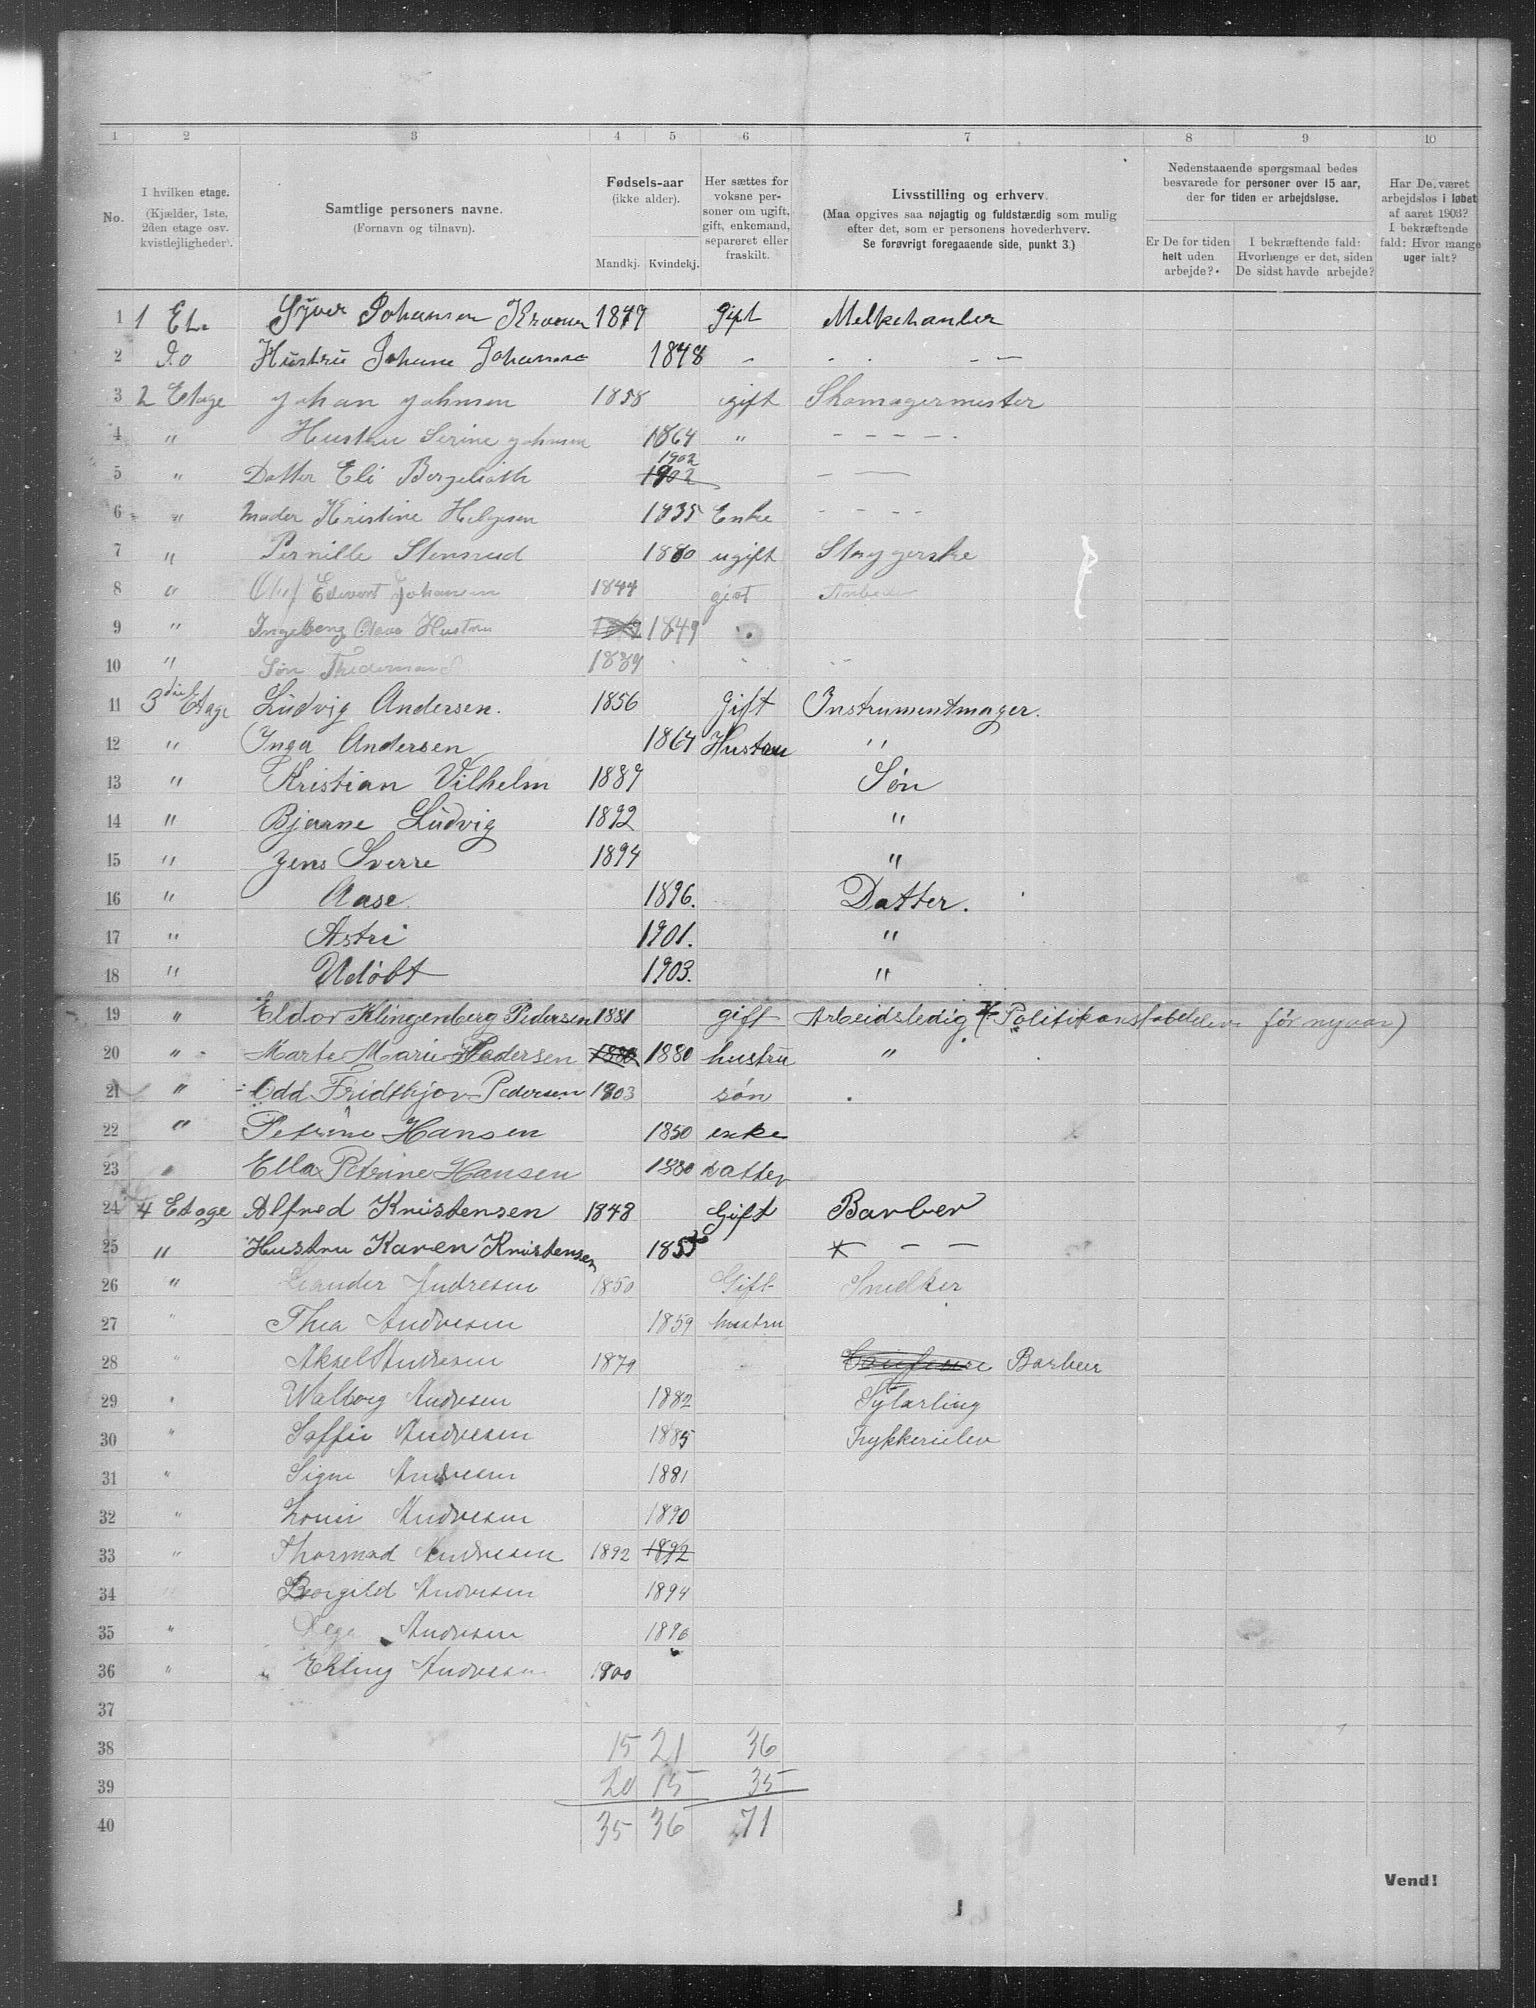 1 2 3 4 5 6 7 8 9 10
No.
I hvilken etage.
(Kjælder, 1ste,
2den etage osv.
kvistlejligheder).
Samtlige personers navne.
(Fornavn og tilnavn).
Fødsels-aar
(ikke alder).
Mandkj. Kvindekj.
Her sættes for
voksne per-
soner om ugift,
gift, enkemand,
separeret eller
fraskilt.
Livsstilling og erhverv.
(Maa opgives saa nøjagtig og fuldstændig som mulig
efter det, som er personens hovederhverv.
Se forøvrigt foregaaende side, punkt 3.)
Nedenstaaende spørgsmaal bedes
besvarede for personer over 15 aar,
der for tiden er arbejdsløse.
Er De for tiden
helt uden
arbejde?
I bekræftende fald:
Hvorlænge er det, siden
De sidst havde arbejde?
Har De været
arbejdsløs i løbet
af aaret 1903?
I bekræftende
fald: Hvor mange
uger ialt?
1 1 Et. Syver Johansen 1847 Gift Melkehanler
2 Do Hustru Johane Johansen 1848 " - - -
3 2 Etage Johan Johnsen 1858 gift Skomagermester
4 " Hustru Serine Johnsen 1864 " - - - -
5 " Datter Eli 1902 1902 - -
6 " Moder Kristine Helgesen 1835 Enke - - - -
7 " Pernille Stensrud 1880 ugift Stryggerske
8 " Oluf Edevart Johansen 1844 gift
9 " Ingeborg Olava Hustru 1849 "
10 " Søn 1889
11 3die Etage Ludvig Andersen. 1856 Gift Instrumentmager.
12 " Inga Andersen 1864 Hustru "
13 " Kristian Vilhelm 1889 Søn
14 " Bjarne Ludvig 1892 "
15 " Jens Sverre 1894 "
16 " Aase. 1896. Datter.
17 " Astri 1901. "
18 " Udøbt 1903. "
19 " Eldor Klingenberg Pedersen 1881 gift Arbeidsledig (Politikonstabelelev før nyaar)
20 " Marte Marie Pedersen 1880 1880 hustru "
21 " Odd Fridthjov Pedersen 1903 søn
22 " Petrine Hansen 1850 enke
23 " Ella Petrine Hansen 1880 datter
24 4 Etage Alfred Kristensen 1848 Gift Barber
25 " Hustru Karen Kristensen 1855 - -
26 " Leander Andresen 1850 Gift Snedker
27 " Thea Andresen 1859 hustru
28 " Aksel Andresen 1879 Barber
29 " Walborg Andresen 1882 Sylærling
30 " Soffie Andresen 1885 Trykkerielev
31 " Signe Andresen 1881
32 " Lovise Andresen 1890
33 " Thormod Andresen 1892 1892
34 Borgild Andresen 1894
35 " Andresen 1896
36 " Erling Andresen 1900
37
38 15 21 36
39 20 15 35
40 35 36 71
Vend!
1